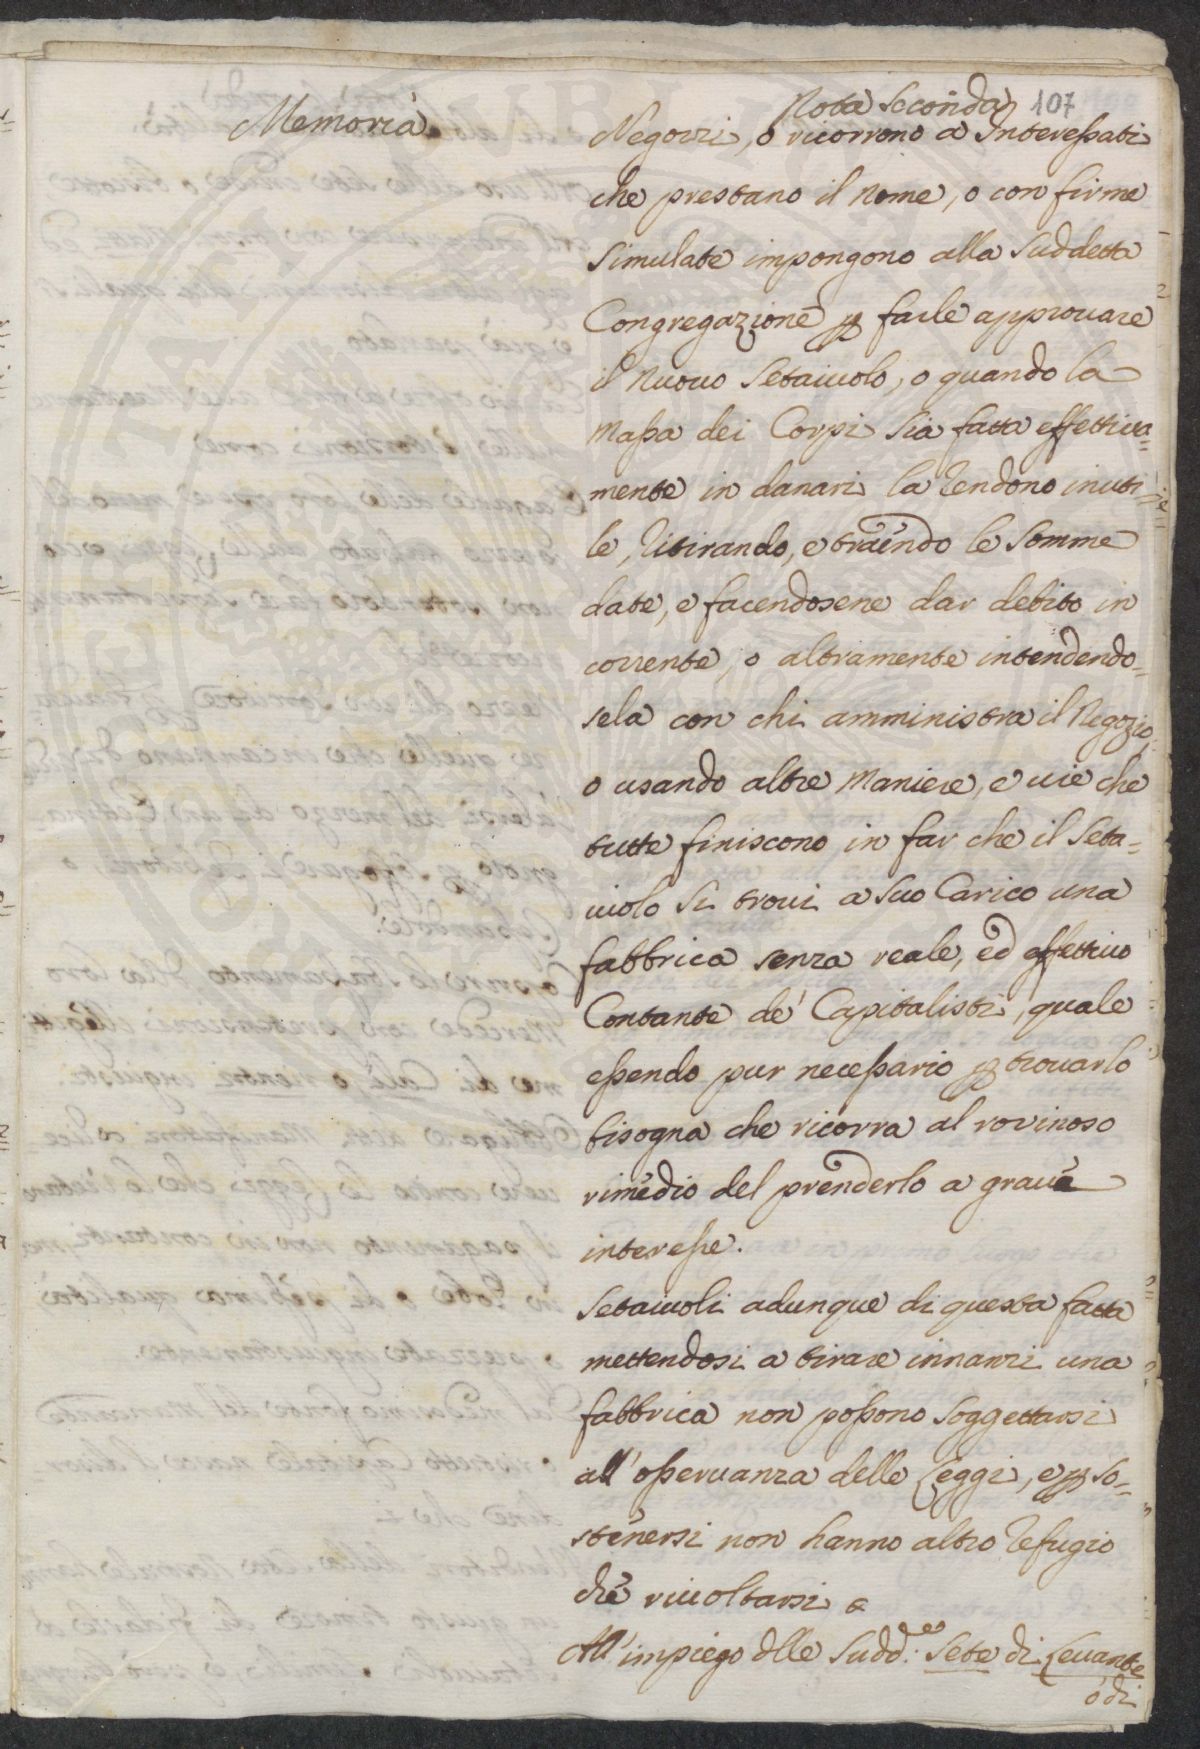 Memoria
Nota Seconda 107
Negozzi, o ricorrono a Interessati
che prestano il Nome, o con firme
simulate impongono alla suddetta
Congregazione p farle approvare
il Nuovo Setaiuolo, o quando la
Massa dei Corpi sia fatta effettiva=
mente in danari la rendono inuti=
le, ritirando, e traendo le somme
date, e facendosene dar debito in
corrente, o altramente intendendo=
sela con chi amministra il Negozio,
o usando altre Maniere, e vie che
tutte finiscono in far che il Seta=
iuolo si trovi a suo Carico una
fabbrica senza reale, ed effettivo
Contante de' Capitalisti, quale
essendo pur necessario p trovarlo
bisogna che ricorra al rovinoso
rimedio del prenderlo a grave
interesse.
Setaiuoli adunque di questa fatta
mettendosi a tirare innanzi una
fabbrica non possono soggettarsi
all'osservanza delle Leggi, e p so=
stenersi non hanno altro refugio
che rivoltarsi
All'impiego dlle Sudd.e Sete di Levante
o di